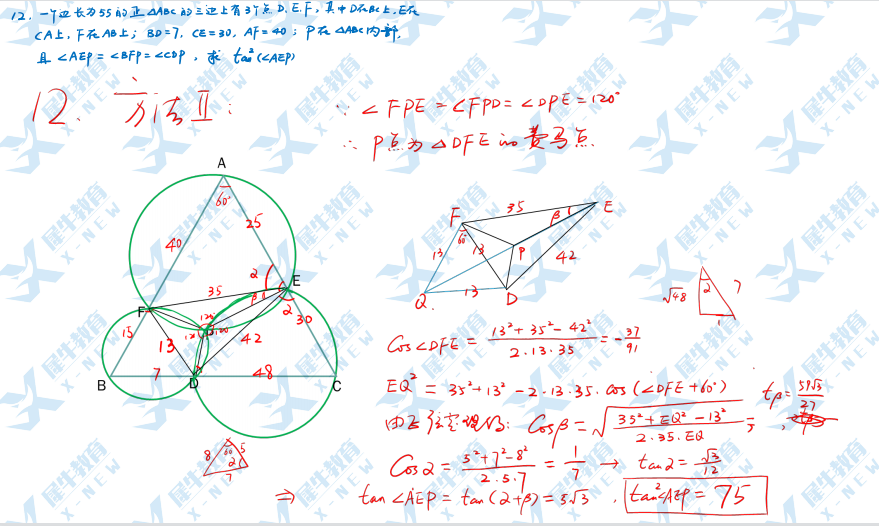 12. 一个边长为55的正△ABC的三边上有3个点D.E.F, 其中D在BC上, E在
CA上, F在AB上; BD=7, CE=30, AF=40; P在△ABC内部,
且 ∠AEP = ∠BFP = ∠CDP, 求 tan²(∠AEP)
12. 方法Ⅱ:
∵ ∠FPE = ∠FPD = ∠DPE = 120°
∴ P点为 △DFE 的 费马点
A
60°
40
25
2
E
35
β
F
120
P
2
30
15
13
42
7
48
B
D
C
8
60
5
2
7
F
35
E
β
60°
13
13
P
42
Q
13
D
√48
2
7
1
Cos∠DFE = 13²+35²-42² / 2·13·35 = -37/91
EQ² = 35²+13²-2·13·35·cos(∠DFE+60°)
Cosβ = √ 35²+EQ²-13² / 2·35·EQ =
tβ = 59√3/27
Cos2 = 5²+7²-8² / 2·5·7 = 1/7 → tan2 = √3/12
⇒ tan∠AEP = tan(2+β) = 5√3, tan²∠AEP = 75
犀牛教育
X-NEW